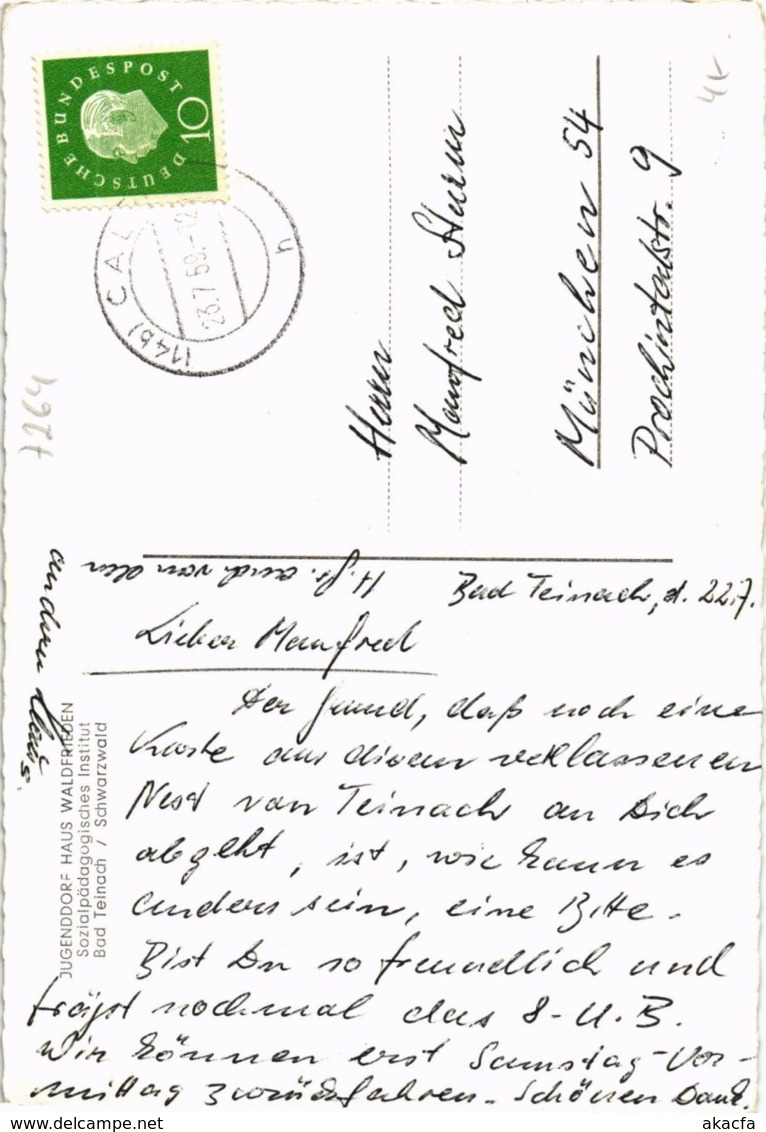 DEUTSCHE BUNDESPOST
10
(14b) CAL
23.7.59.-12
h
7264
4x
Herrn
Manfred Sturm
München 54
Prochintalstr. 9
Bad Teinach, d. 22.7.
Lieber Manfred
Der Grund, daß noch eine
Karte aus diesem verlassenen
Nest von Teinach an Dich
abgeht, ist, wie kann es
anders sein, eine Bitte.
Bist Du so freundlich und
trägst nochmal das S-U.B.
Wir können erst Samstag-Vor-
mittag zurückfahren. Schönen Dank.
H. Gr. auch von den
andern
JUGENDDORF HAUS WALDFRIEDEN
Sozialpädagogisches Institut
Bad Teinach / Schwarzwald
akacfa